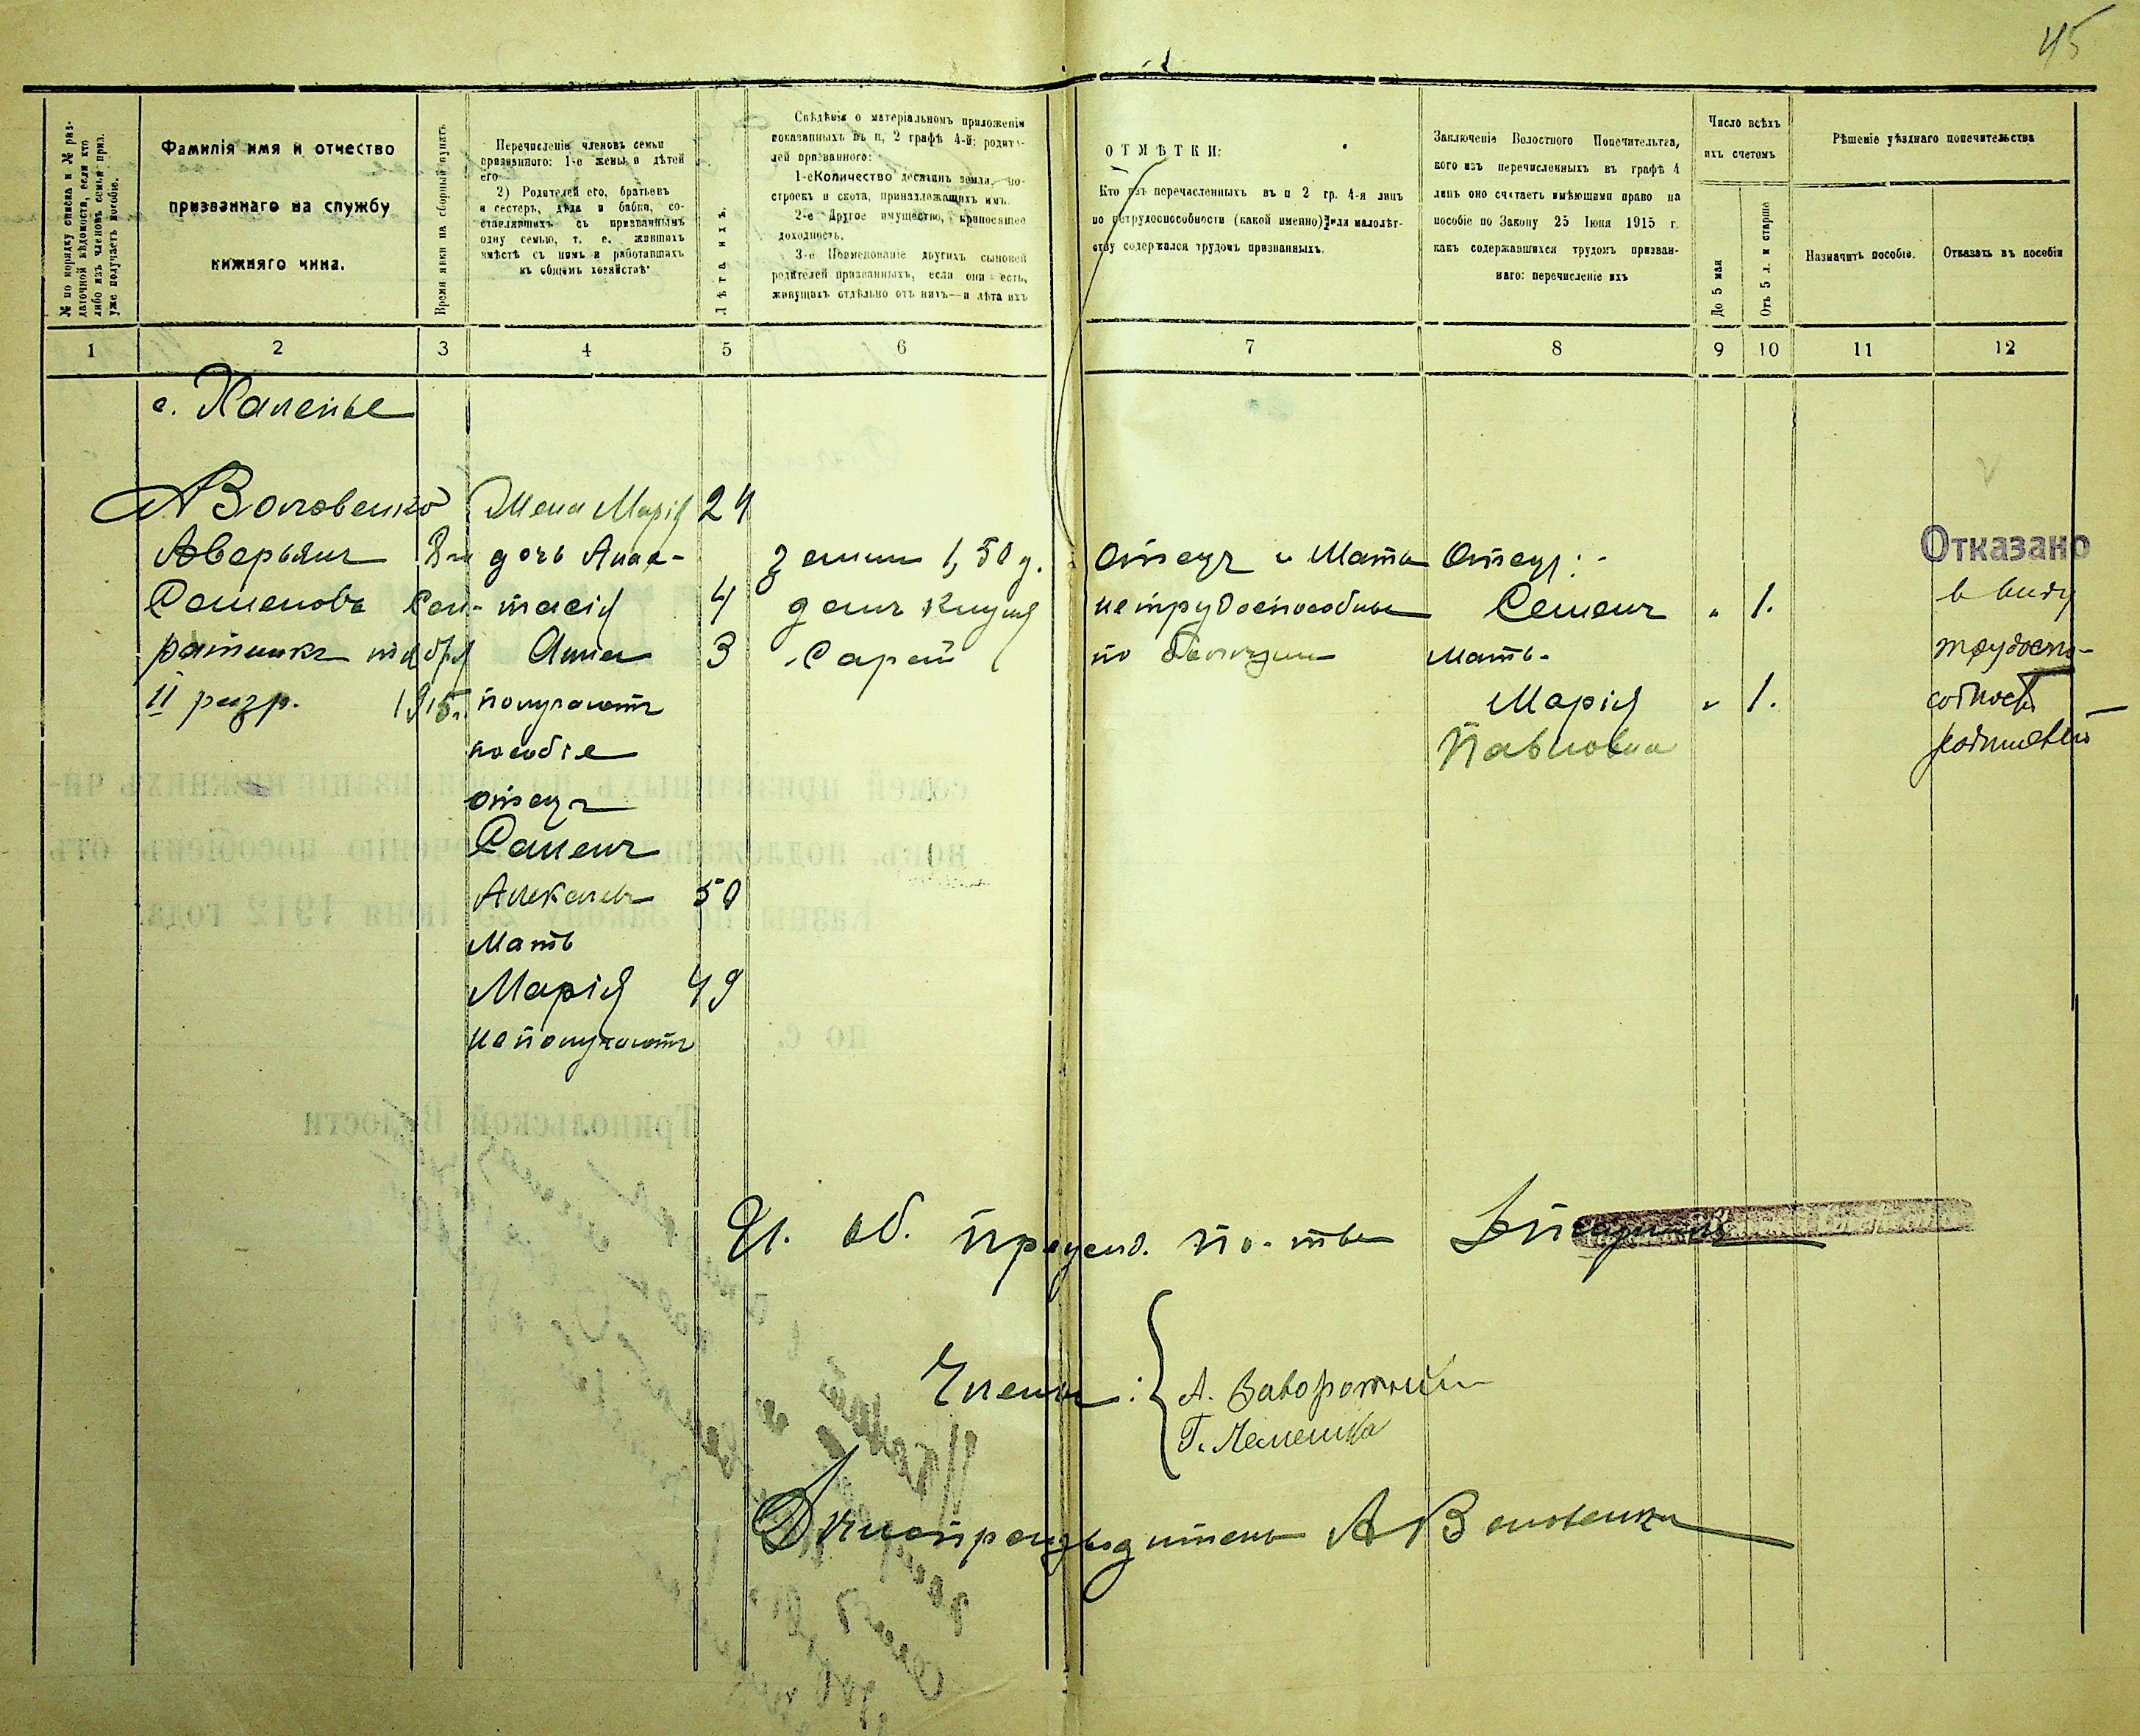 45
№ по порядку списка и № раз-
даточной вѣдомости, если кто
либо изъ членовъ семьи приз.
уже получаетъ пособіе.
Фамилія имя и отчество
призваннаго на службу
нижняго чина.
Время явки на сборный пунктъ
Перечисленіе членовъ семьи
призваннаго: 1-е жены и дѣтей
его
2) Родителей его, братьевъ
и сестеръ, дѣда и бабки, со-
ставлявшихъ съ призваннымъ
одну семью, т. е. жившихъ
вмѣстѣ съ нимъ и работавшихъ
въ общемъ хозяйствѣ
Лѣта ихъ.
Свѣдѣнія о матеріальномъ приложеніи
показанныхъ въ п, 2 графѣ 4-й: родите-
лей призваннаго:
1-е Количество десятинъ земли, по-
строекъ и скота, принадлежащихъ имъ.
2-е Другое имущество, приносящее
доходность.
3-е Поименованіе другихъ сыновей
родителей призванныхъ, если они есть,
живущихъ отдѣльно отъ нихъ—и лѣта ихъ
ОТМѢТКИ:
Кто изъ перечисленныхъ въ п 2 гр. 4-я лицъ
по нетрудоспособности (какой именно) или малолѣт-
ству содержался трудомъ призванныхъ.
Заключеніе Волостного Попечительтва,
кого изъ перечисленныхъ въ графѣ 4
лицъ оно считаетъ имѣющими право на
пособіе по Закону 25 Іюня 1915 г.
какъ содержавшихся трудомъ призван-
наго: перечисленіе ихъ
Число всѣхъ
ихъ счетомъ
До 5 мая
Отъ 5 л. и старше
Рѣшеніе уѣзднаго попечительства
Назначить пособіе.
Отказать въ пособіи
1 2 3 4 5 6 7 8 9 10 11 12
с. Халепье
Воловенко Жена Марія 24
Аверьян 8го дочь Анас- земли 1,50 д. Отецъ и Мать Отецъ:- Отказано
Семеновъ Сен- тасія 4 домъ Клуня нетрудоспособны Семенъ „ 1. в виду
ратникъ тября Анна 3 Сарай по болезни мать- трудоспо-
II разр. 1915г. получаютъ Марія „ 1. собности
пособіе Павловна родителей
отецъ
Семенъ
Алексеев 50
Мать
Марія 49
не получаютъ
И. об. председ. п-тва
Члены: А. Заворотній
Г. Лемешка
Делопроизводитель А Воловенко